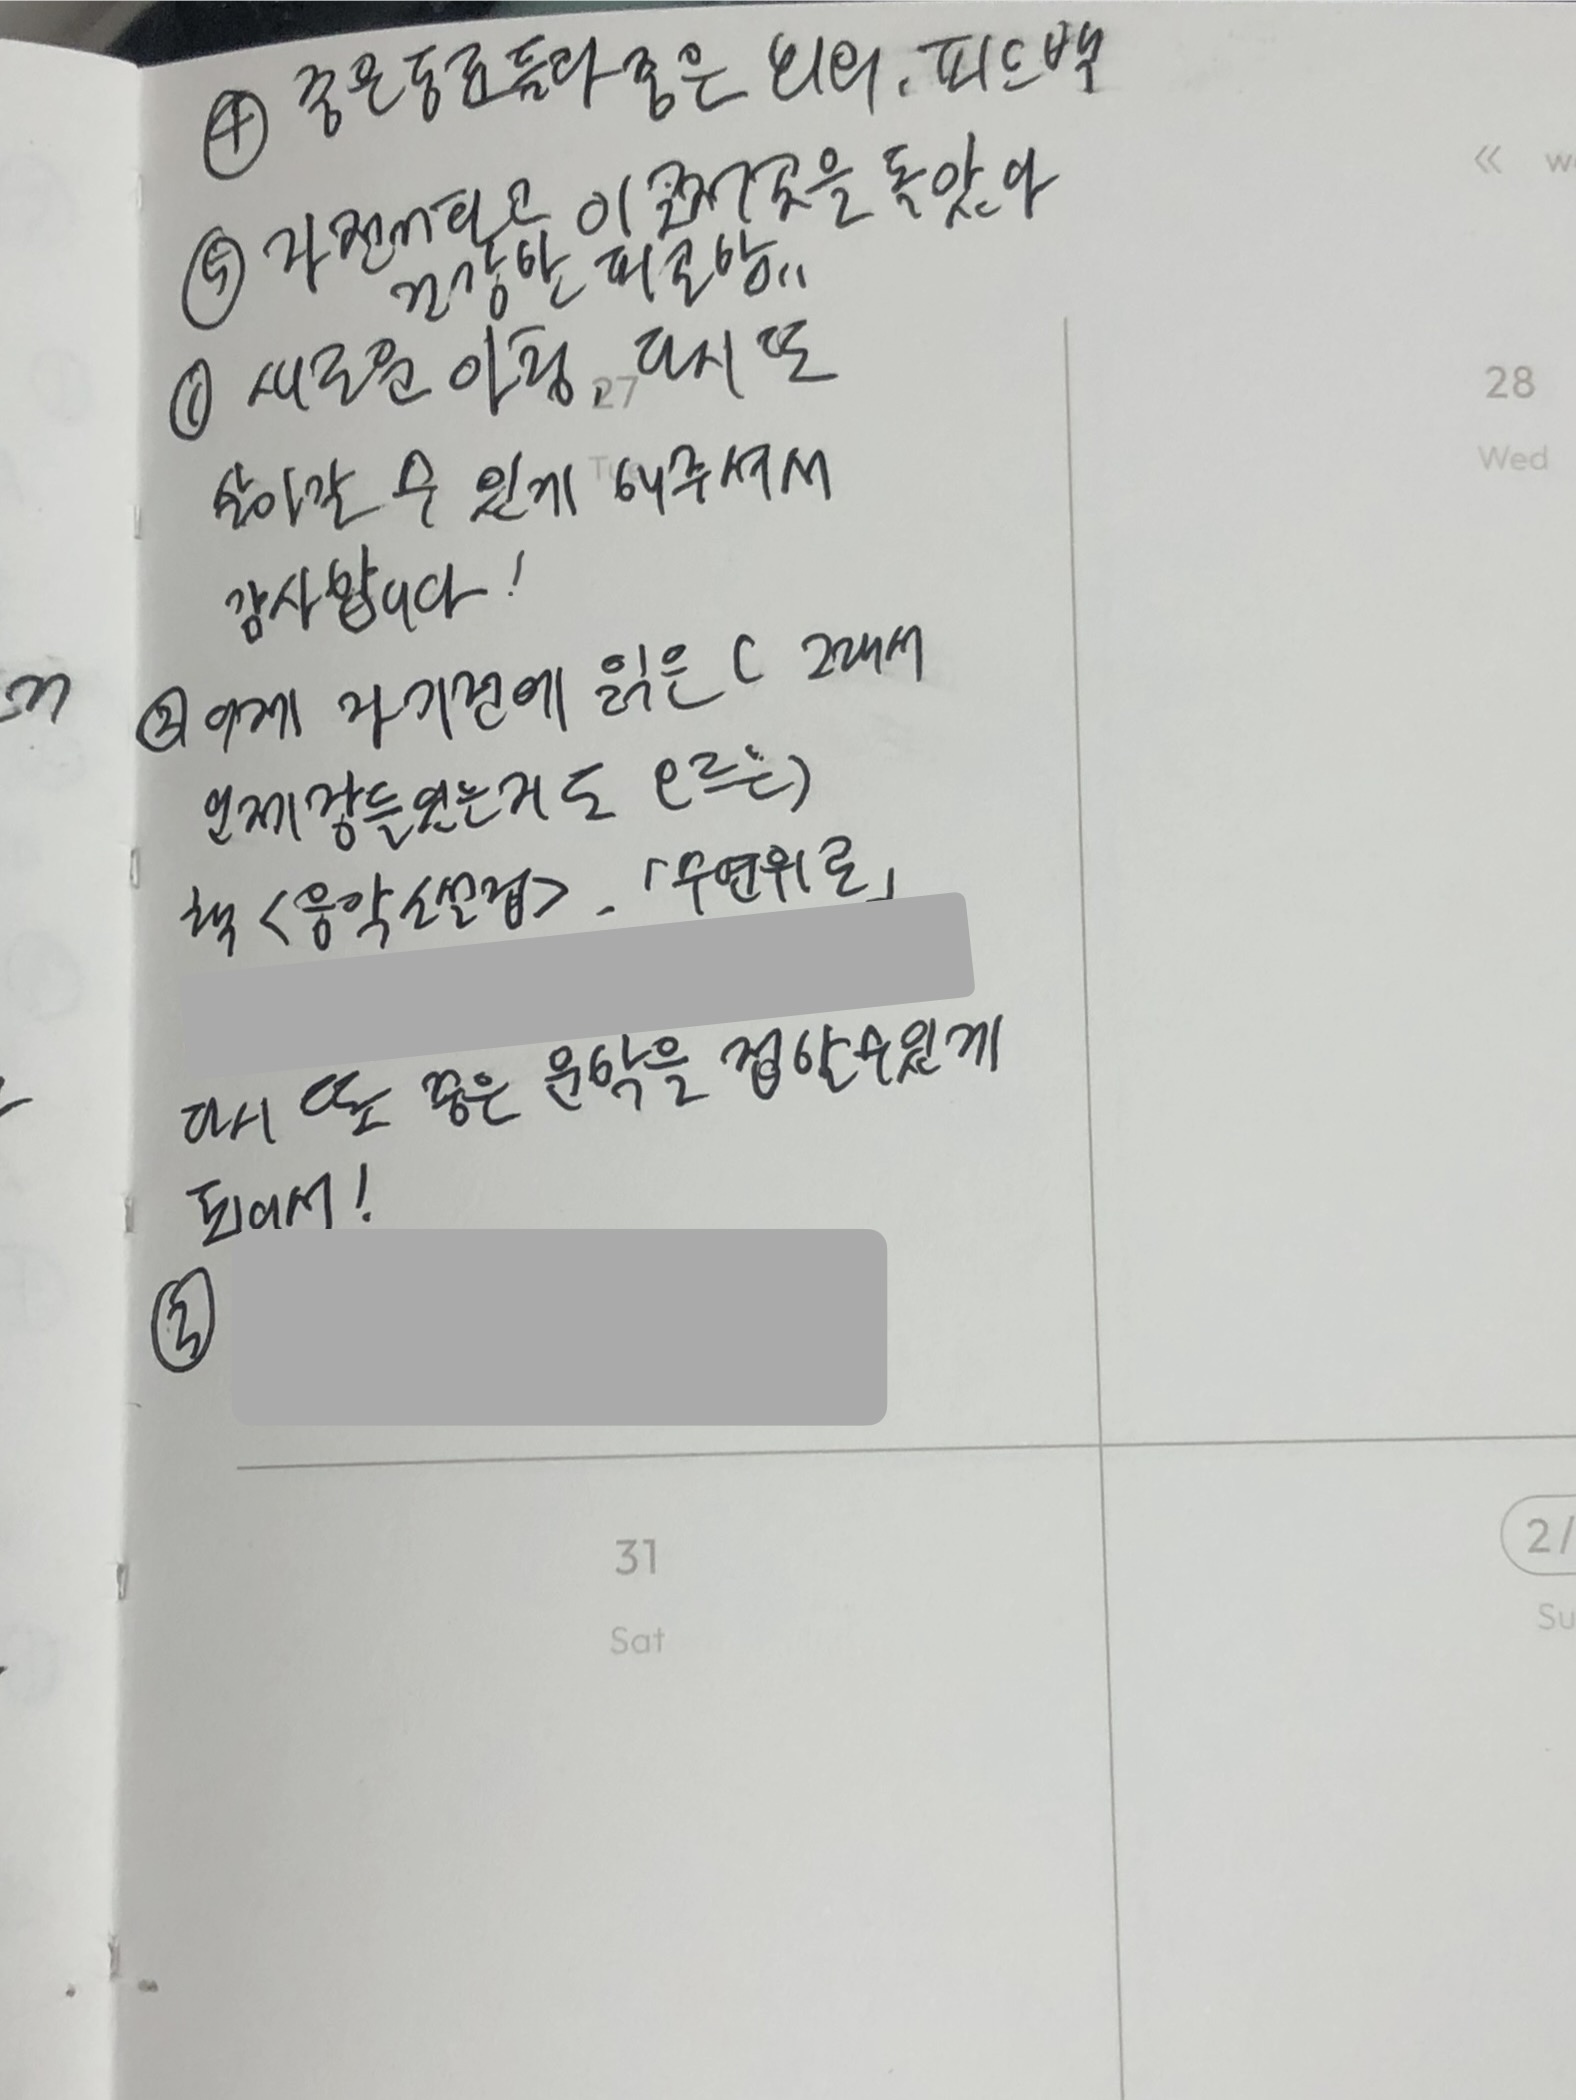 ④ 좋은 동료들과 좋은 회의, 피드백
⑤ 자전거타고 이곳저곳을 돌았다
건강한 피로함..
① 새로운 아침, 다시 또
살아갈 수 있게 해주셔서
감사합니다!
② 어제 자기전에 읽은 ( 그래서
언제 잠들었는지도 모르는)
책 <음악소설집> - 「수면위로」
다시 또 좋은 문학을 접할수있게
되어서!
③
27
Tue
« we
28
Wed
31
Sat
2/
Su